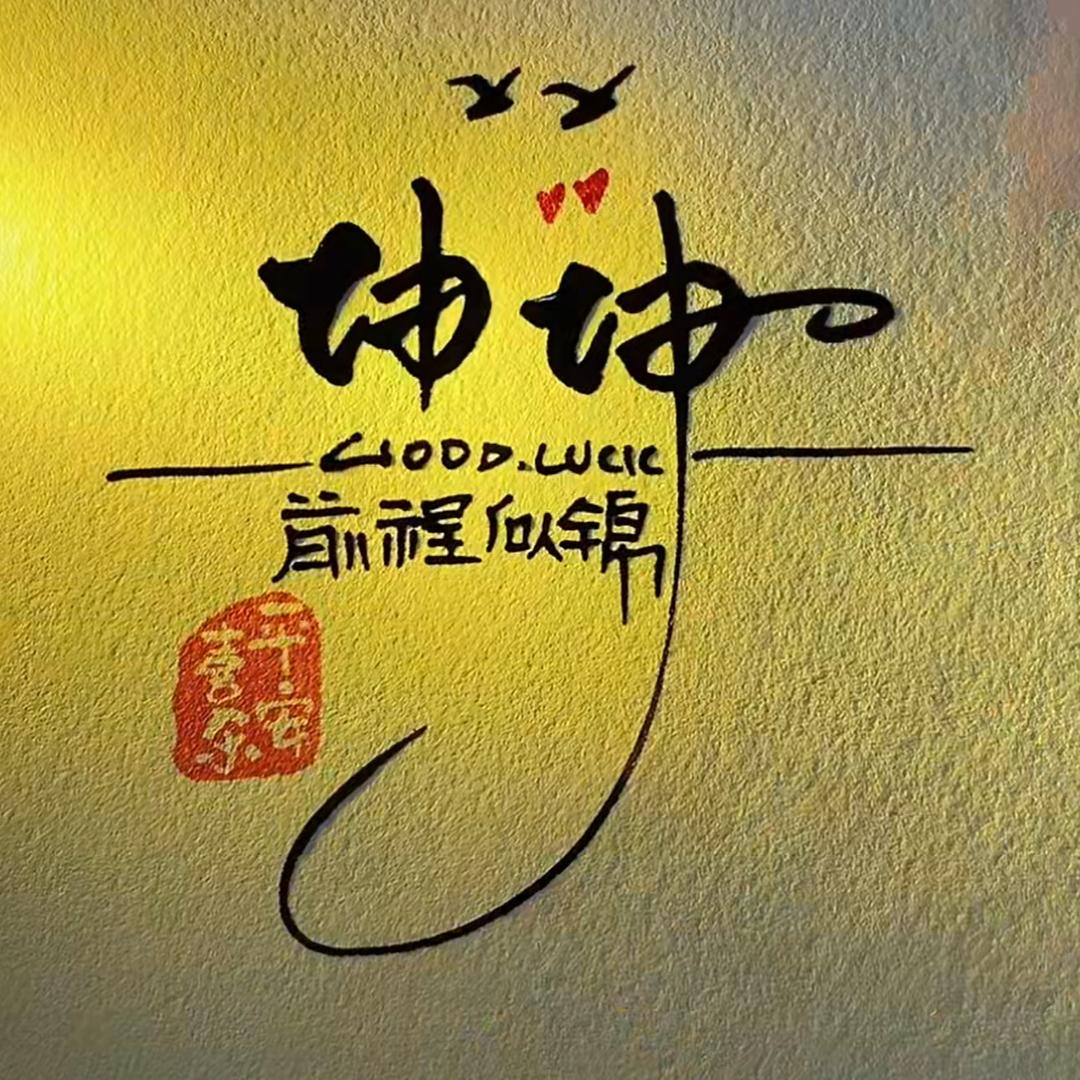 坤坤
GOOD.LUCK
前程似锦
平安
喜乐